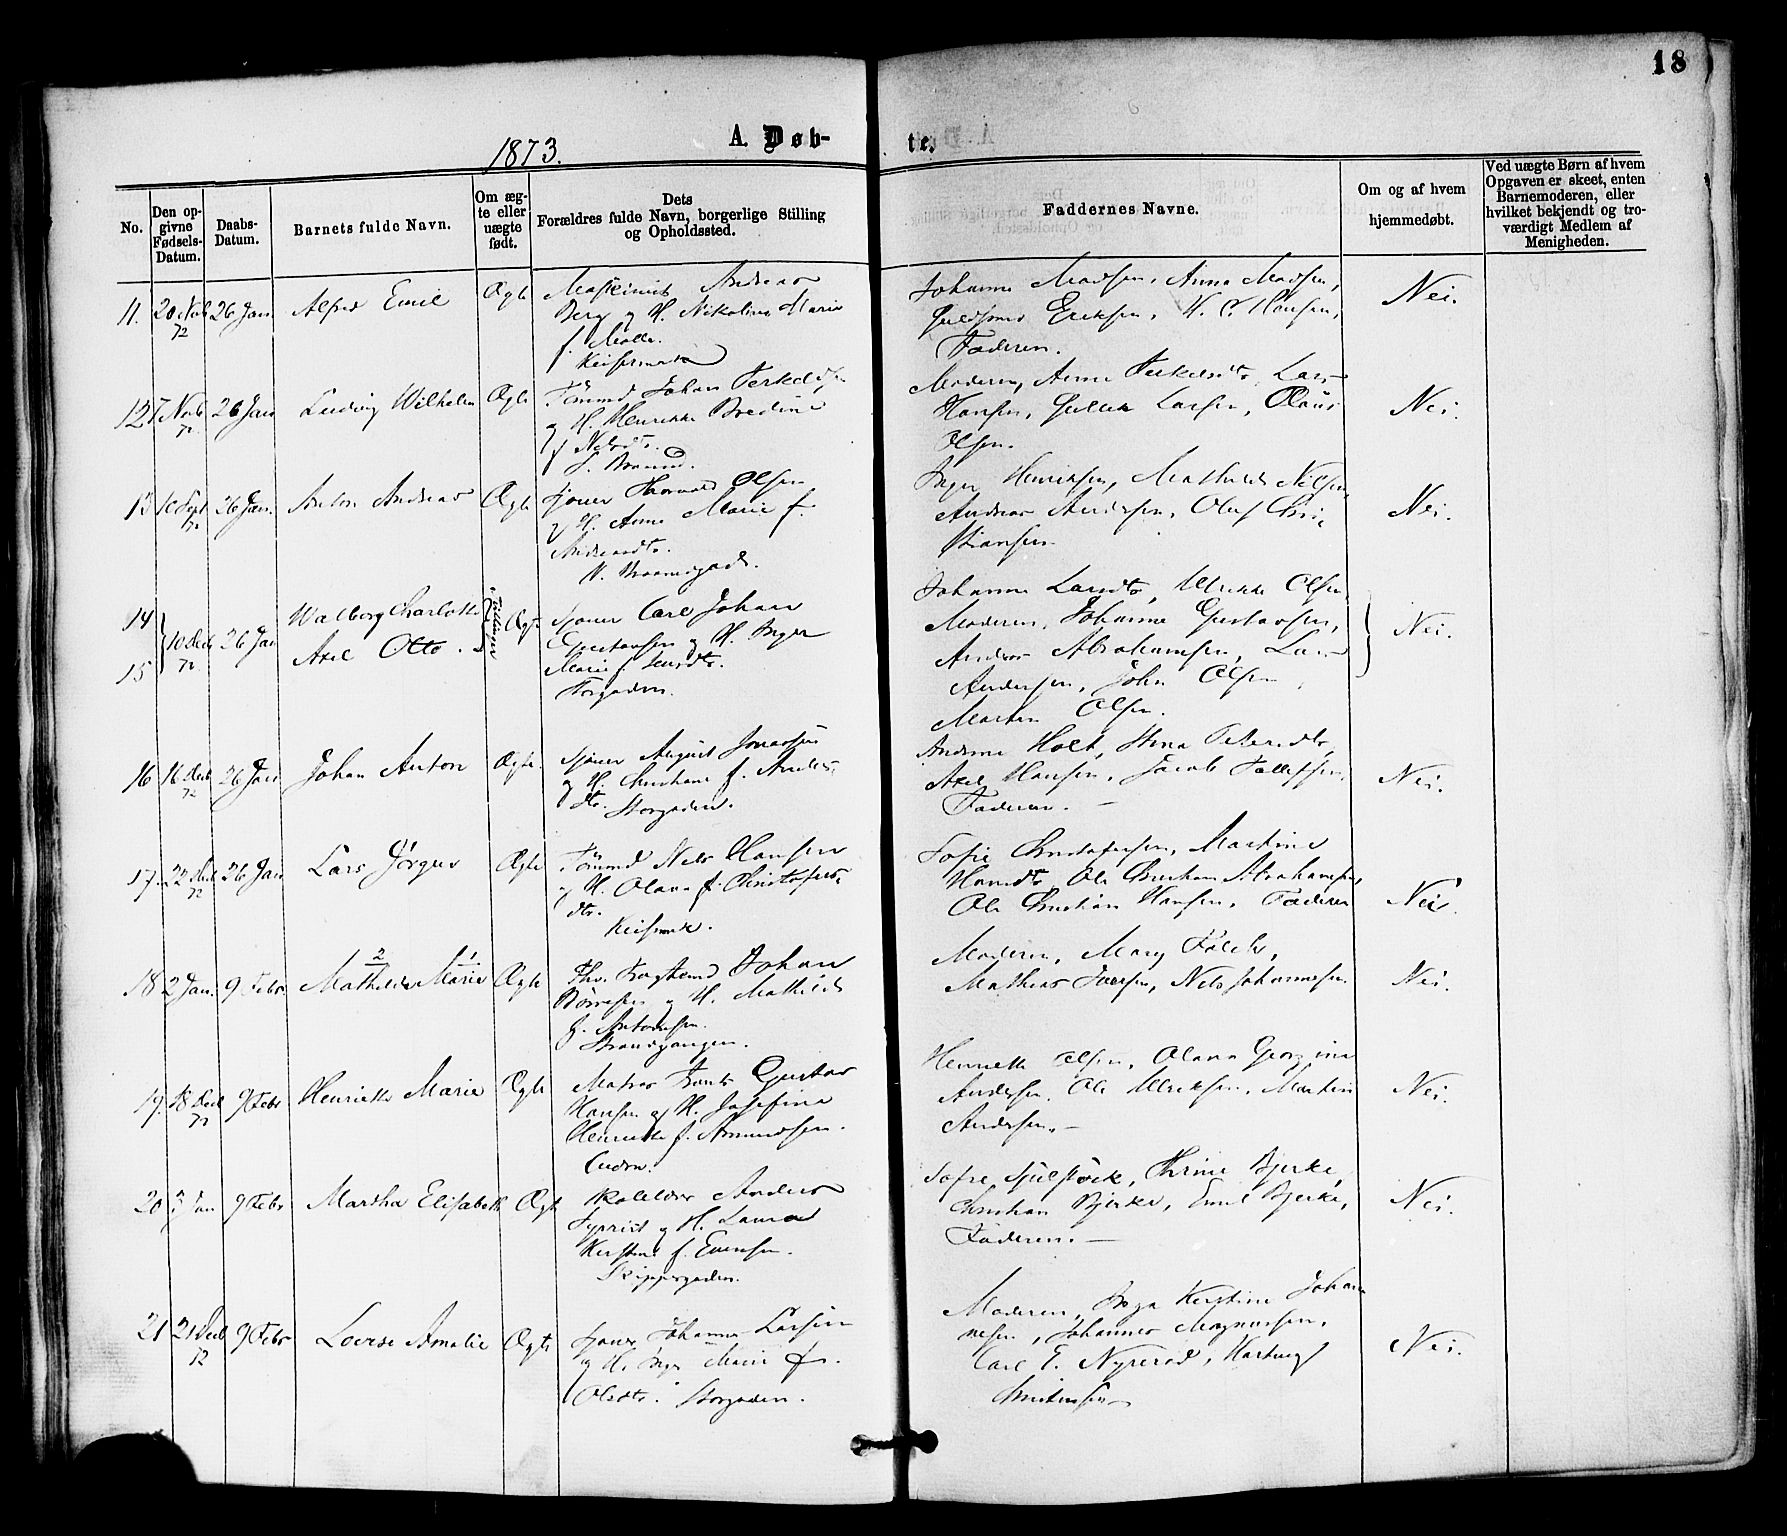 18
1873.
A. Døb-
te.
No.
Den op-
givne
Fødsels-
Datum.
Daabs-
Datum.
Barnets fulde Navn.
Om æg-
te eller
uægte
født.
Dets
Forældres fulde Navn, borgerlige Stilling
og Opholdssted.
Faddernes Navne.
Om og af hvem
hjemmedøbt.
Ved uægte Børn af hvem
Opgaven er skeet, enten
Barnemoderen, eller
hvilket bekjendt og tro-
værdigt Medlem af
Menigheden.
11. 20 Novb 72 26 Jan Alfred Emil Ægte
Maskinist Andreas
Berg og H. Nikoline Marie
f. Molle.
Johanne Madsen, Anna Madsen,
Guldsmed Eriksen, H. C. Hansen,
Faderen.
Nei.
12 7 Novb 72 26 Jan Ludvig Wilhelm Ægte
Tømmd Johan Terkelds
og H. Henrikke Bredine
f Nelsdt.
Moderen, Anne Terkelsdt, Lars
Hansen, Larsen, Olaus
Olsen.
Nei.
13 10 Sept 72 26 Jan. Anton Andreas Ægte
Sjøner Thorvald Olsen
og H. Anne Marie f.
Andreasdt.
Inger Henriksen, Mathilde Nilsen,
Andreas Andersen, Oluf Chri-
stiansen
Nei.
14 Walborg Charlotte
15 10 Decb 72 26 Jan Axel Otto. Tvillinger Ægte
Sjøner Carl Johan
Gustavsen og H. Inger
Marie f.
Torgaden.
Johanne Larsdt, Ulrikke Olsen,
Moderen, Johanne Gustavsen,
Andreas Abrahamsen, Lars
Andersen, John Olsen,
Martin Olsen.
Nei.
16 16 Decb 72 26 Jan Johan Anton Ægte.
Sjøner August Jonassen
og H. Christiane f. Anders-
dtr. Storgaden.
Andrine Holt, Stina Petersdt,
Axel Hansen, Jacob Tellefsen,
Faderen. —
Nei.
17. 22 Decb 72 26 Jan Lars Jörgen Ægte
Tømmd Nels Hansen
og H. Olava f. Christofers-
dtr.
Sofie Christofersen, Martine
Hansdt, Ole Christian Abrahamsen,
Ole Christian Hansen, Faderen
Nei.
18 2 Jan. 9 Febr. Mathilde 2 Marie 1 Ægte
Johan
Börresen og H. Mathilde
f. Antonsen.
Strandgangen.
Moderen, Mary Falck,
Mathias Iversen, Nels Johannesen
Nei.
19. 18 Decb 72 9 Febr Henriette Marie Ægte
Matros Gustav
Hansen og H. Josefine
Henriette f. Amundsen.
Henriette Olsen, Olava Georgine
Andersen, Ole Ulriksen, Martin
Andersen. —
Nei.
20 Jan 9 Febr Martha Elisabeth Ægte
Anders
og H. Laura
Kerstine f. Evensen.
Skippergaden.
Sofie Sjulstock, Thrine Bjerke,
Christian Bjerke, Emil Bjerke,
Faderen. —
Nei.
21 21 Decb 72 9 Febr Lovise Amalie Ægte
Sjøner Johannes Larsen
og H. Inger Marie f.
Olsdtr. Storgaden.
Moderen, Inga Kerstine Johan-
nesen, Johannes Magnussen,
Carl E. Nyrerød, Hartvig
Christensen
Nei.